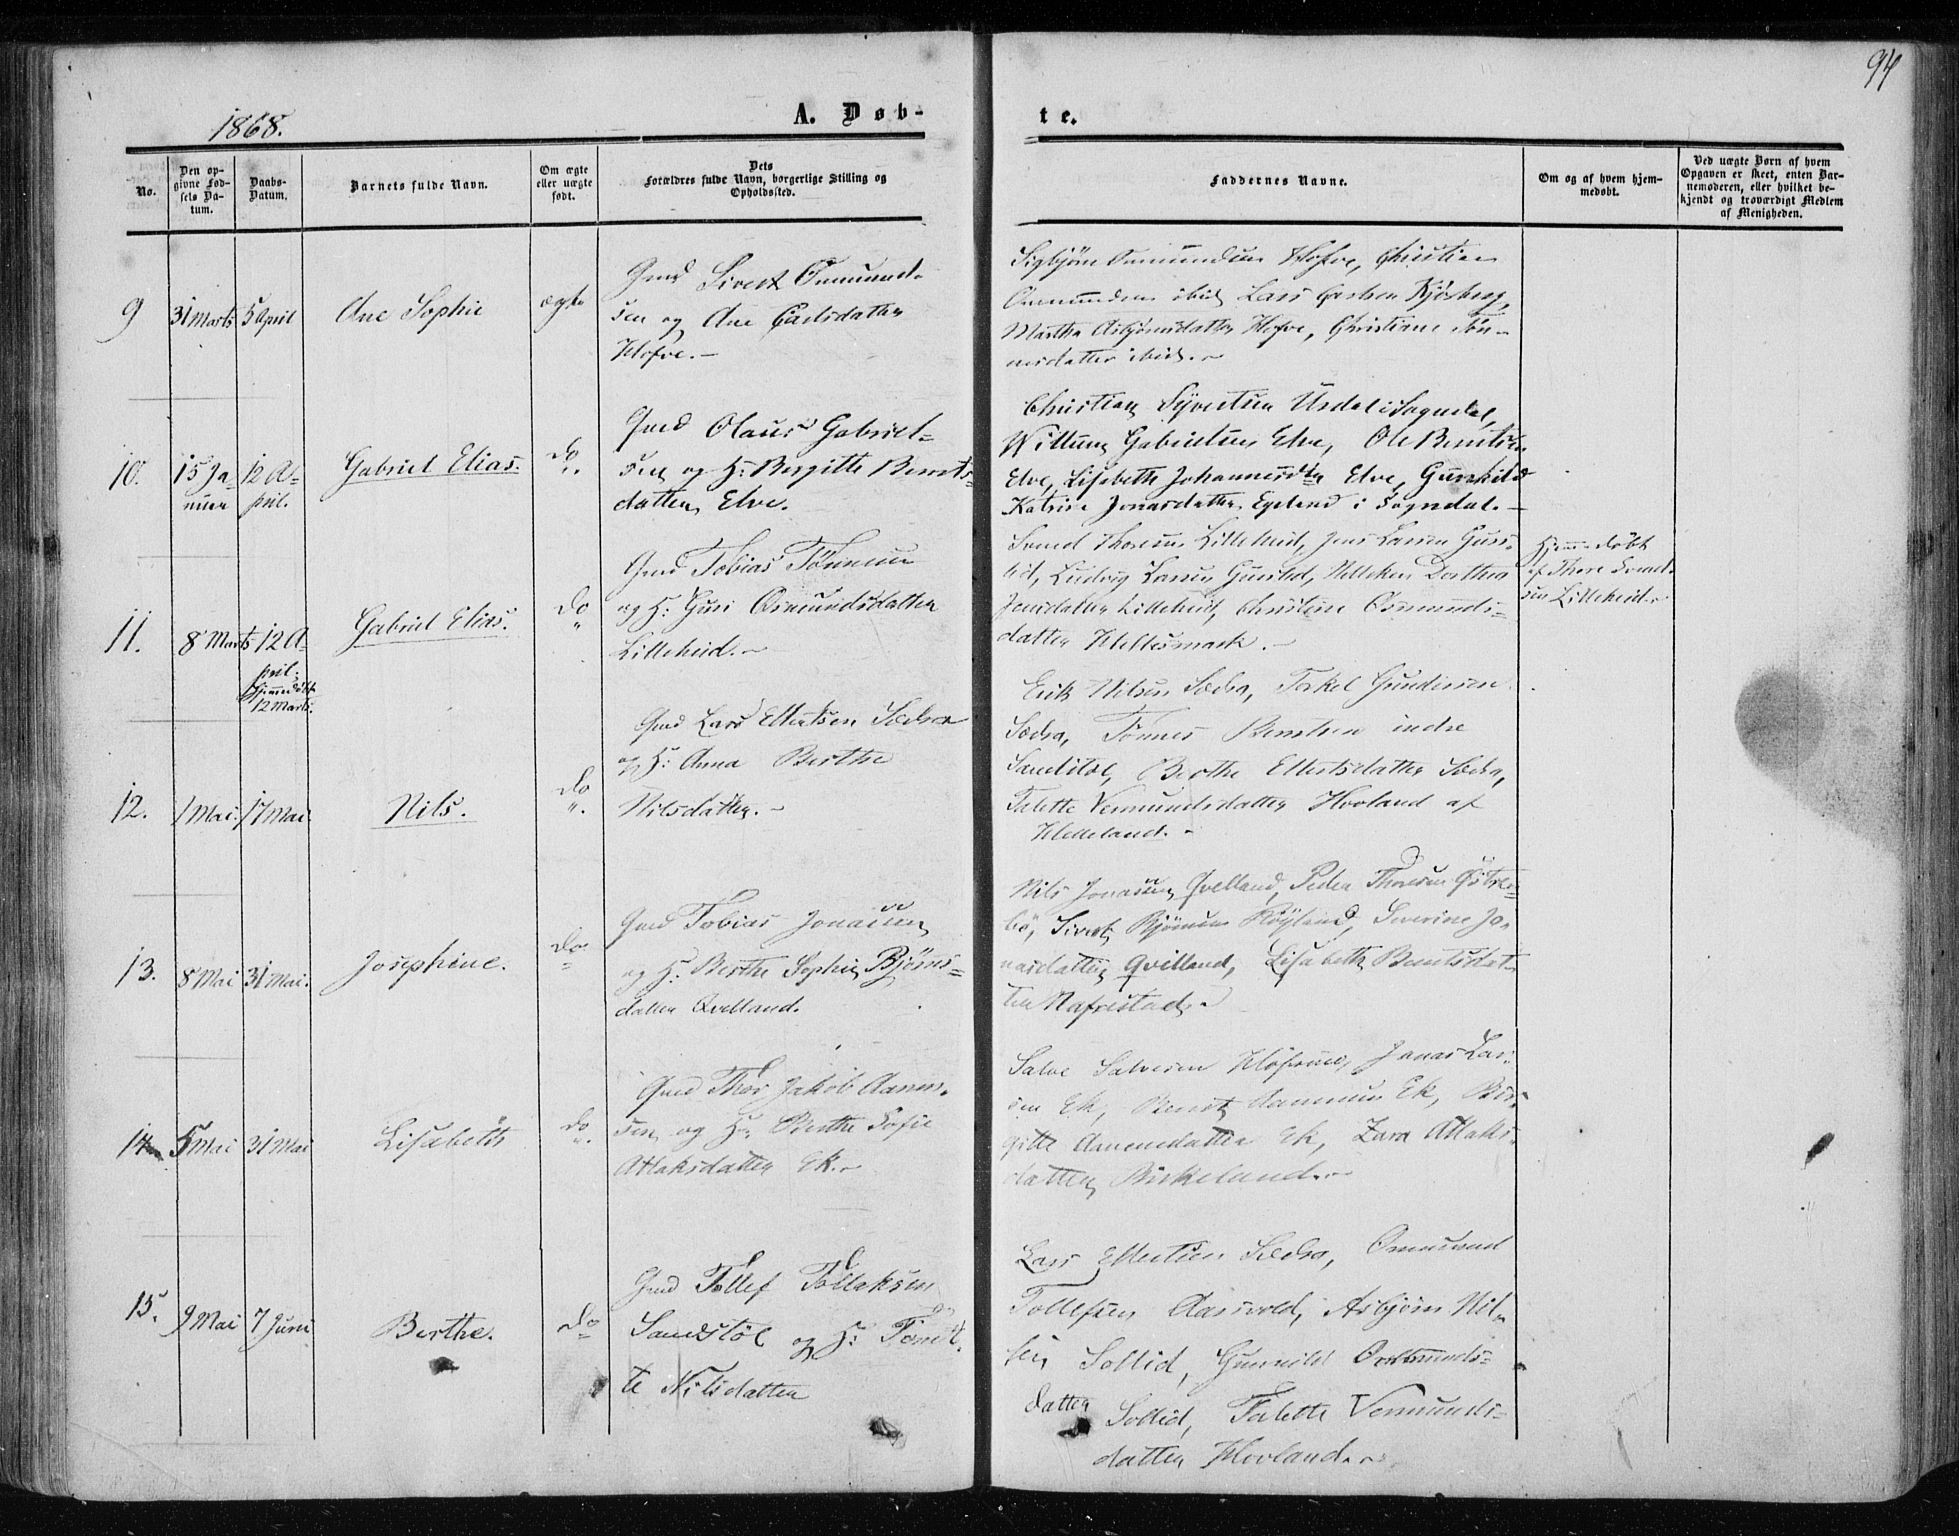 94
1868.
A. Døb-
te.
No.
Den op-
givne Fød-
sels Da-
tum.
Daabs-
Datum.
Barnets fulde Navn.
Om ægte
eller uægte
født.
Dets
Forældres fulde Navn, borgerlige Stilling og
Opholdssted.
Faddernes Navne.
Om og af hvem hjem-
medøbt.
Ved uægte Børn af hvem
Opgaven er skeet, enten Bar-
nemoderen, eller hvilket be-
kjendt og troværdigt Medlem
af Menigheden.
9
31 Marts
5 April
Ane Sophie
ægte
Gmd Sivert Omund-
sen og Ane Carlsdatter
Hofve.-
Sigbjörn Omundsen Hofve, Christian
Omundsen ibid, Lars
Martha Asbjörnsdatter Hofve, Christiane Tön-
nesdatter ibid.-
10.
15 Ja-
nuar
12 A-
pril.
Gabriel Elias.
Do
Gmd Olaus Gabriel-
sen og H: Bergitte Bernts-
datter, Elve.
Christian Syvertsen Urdal i Sogndal,
Gabrielsen Elve, Ole Berntsen
Elve, Lisabeth Johannesdtr Elve, Gunhild
Katrine Jonasdatter Egeland i Sogndal.-
11.
8 Marts
12 A-
pril.
hjemmedöbt
12 Marts.
Gabriel Elias.
Do
Gmd Tobias Tönnesen
og H: Guri Osmundsdatter
Lilleheid.-
Svend Thoresen Lilleheid, Jens Larsen Guss-
lid, Ludvig Larsen Guslid, Dorthea
Jensdatter Lilleheid, Christine Osmunds-
datter Hellesmark.-
Hjemmedöbt
af Thore Svend-
sen Lilleheid.-
12.
1 Mai.
17 Mai.
Nils.
Do
Gmd Lars Ellertsen Sædra
og H: Anna Berthe
Nilsdatter.-
Erik Nilsen Sædra, Torkel Gundersen
Sædra, Tönnes Berntsen indre
Sandstöl, Berthe Ellertsdatter Sædra,
Talette Vermundsdatter Hovland af
Helleland.-
13.
8 Mai
31 Mai.
Josephine.
Do
Gmd Tobias Jonassen
og H: Berthe Sophie Björns-
datter Qvelland.
Nils Jonassen Qvelland, Peder Thorsen Östre-
bö, Sivert Björnsen Röyland, Severine Jo-
nasdatter Qvelland, Lisabeth Berntsdat-
ter Hafrestad.-
14
5 Mai
31 Mai
Lisabeth
Do
Gmd Thor Jakob Aanen-
sen og H: Berthe Sofie
Atlaksdatter Ek.-
Salve Salvesen Jonas Lar-
sen Ek, Bernt Aanensen Ek, Ber-
gitte Aanensdatter Ek, Zara Atlaks-
datter Birkeland.-
15.
9 Mai
7 Juni
Berthe.
Do
Gmd Tollef Tollaksen
Sandstöl og H: Tonet-
te Nilsdatter
Lars Ellertsen Sædra, Omund
Tollefsen Aarsvold, Asbjörn Nil-
sen Sollid, Gunnild Osmunds-
datter Sollid, Talette Vermunds-
datter Hovland.-